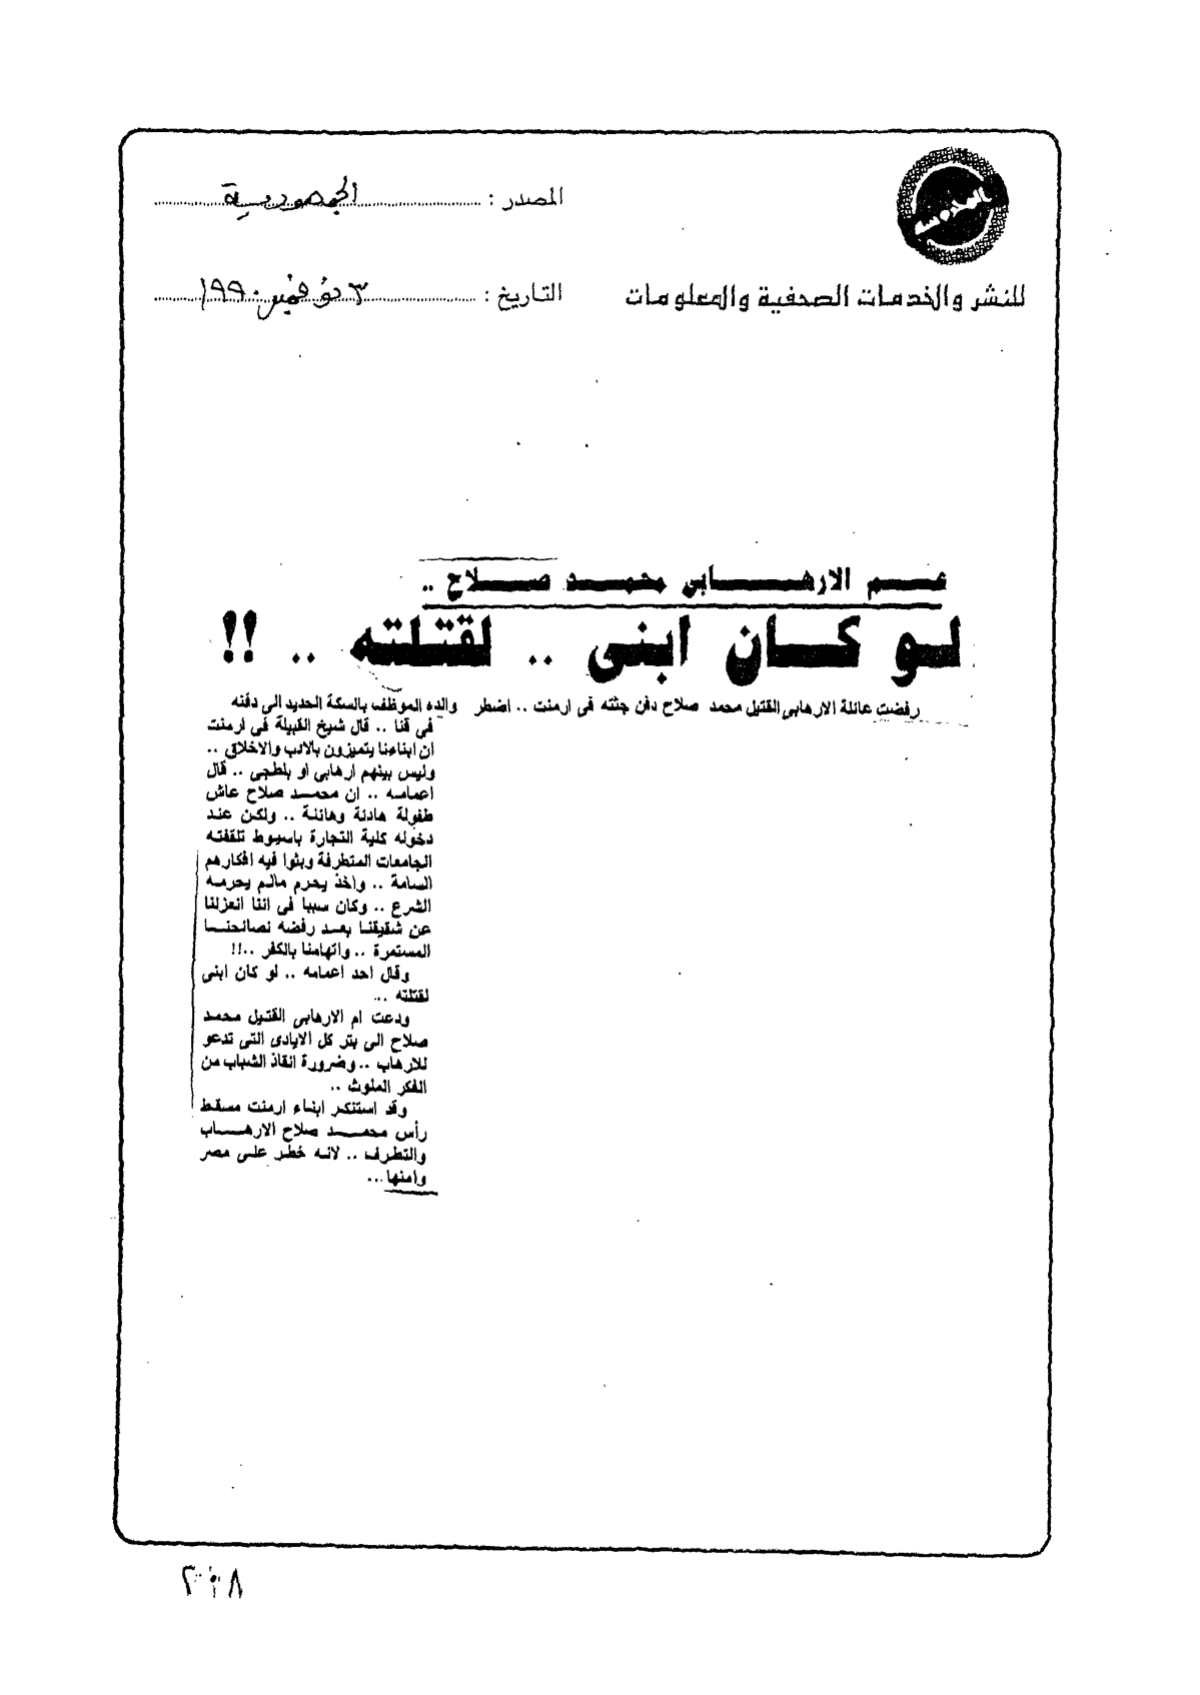 المصدر : الجمهورية
التاريخ : ٣ نوفمبر ١٩٩٠
للنشر والخدمات الصحفية والمعلومات
عم الارهابى محمد صلاح ..
لو كان ابنى .. لقتلته .. !!
رفضت عائلة الارهابى القتيل محمد صلاح دفن جثته فى ارمنت .. اضطر والده الموظف بالسكة الحديد الى دفنه
فى قنا .. قال شيخ القبيلة فى ارمنت
ان ابناءنا يتميزون بالادب والاخلاق ..
وليس بينهم ارهابى او بلطجى .. قال
اعمامه .. ان محمد صلاح عاش
طفولة هادئة وهانئة .. ولكن عند
دخوله كلية التجارة باسيوط تلقفته
الجامعات المتطرفة وبثوا فيه افكارهم
السامة .. واخذ يحرم مالم يحرمه
الشرع .. وكان سببا فى اننا انعزلنا
عن شقيقنا بعد رفضه نصائحنا
المستمرة .. واتهامنا بالكفر ..!!
وقال احد اعمامه .. لو كان ابنى
لقتلته ..
ودعت ام الارهابى القتيل محمد
صلاح الى بتر كل الايادى التى تدعو
للارهاب .. وضرورة انقاذ الشباب من
الفكر الملوث ..
وقد استنكر ابناء ارمنت مسقط
رأس محمد صلاح الارهاب
والتطرف .. لانه خطر على مصر
وامنها ...